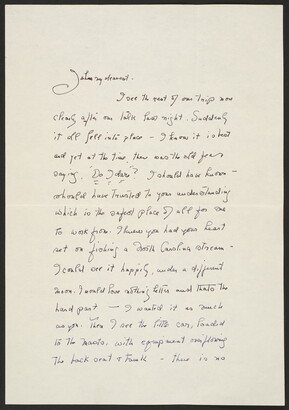 John my dearest.
I see the rest of our trip now
clearly after our talk last night. Suddenly
it all fell into place - I know it is best
and yet at the time there was the old fear
saying, "Do I dare"? I should have known -
should have trusted to your understanding
which is the safest place of all for me
to work from. I knew you had your heart
set on fishing a North Carolina stream -
I could see it happily, under a different
moon. I would have nothing and that's the
hard part — I wanted it as much
as you. Then I see the little car, loaded
to the masts, with equipment
the back seat & trunk - there is no